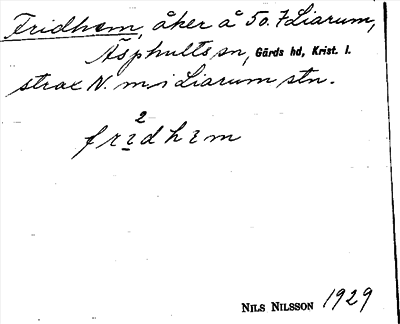 Fridhem, åker å 50. 7 Liarum,
Äsphults sn, Gärds hd, Krist. l.
strax N. m i Liarum stn.
2
fridhem
NILS NILSSON 1929